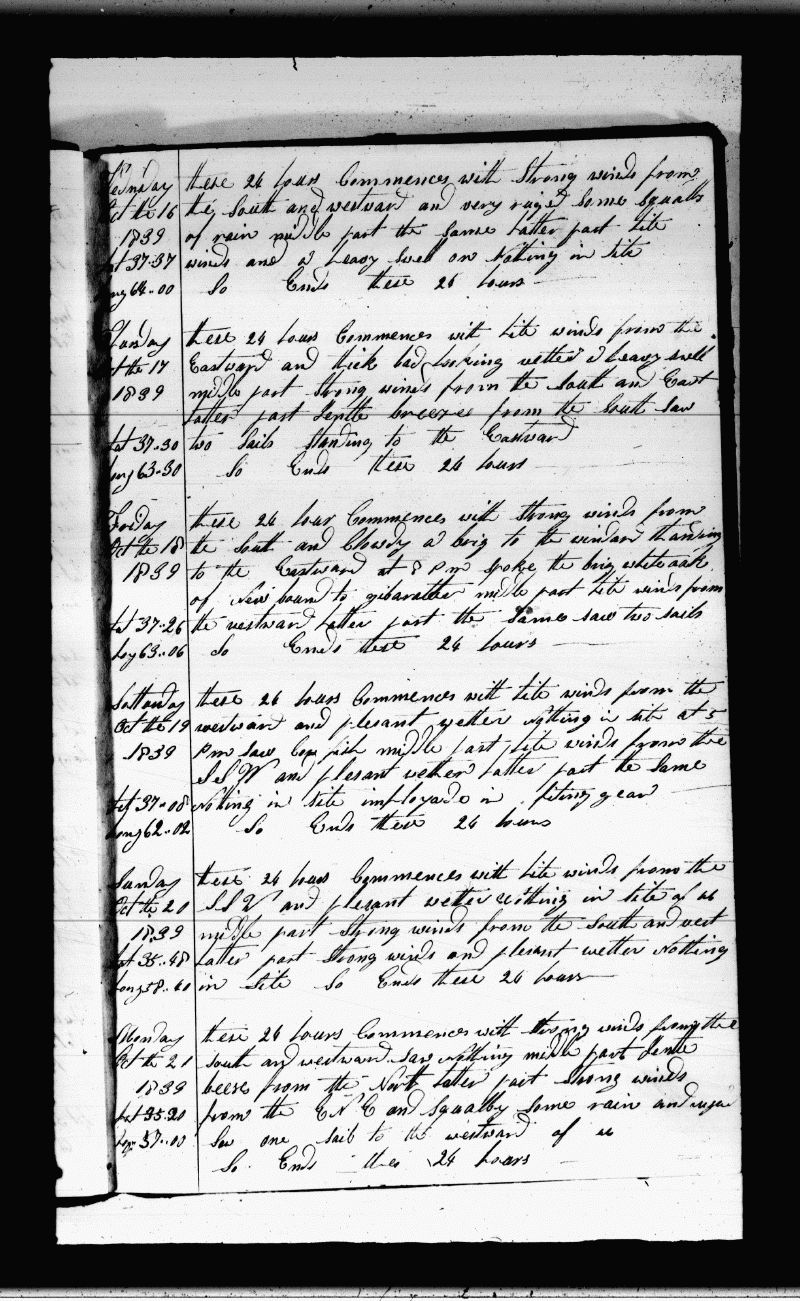 Wensday these 24 hours Commences with Strong winds from
Oct the 16 the South and westward and very ruged Some Squalls
1839 of rain middle part the Same latter part lite
Lat 37-37 winds and a heavy Swell on Nothing in Site
Long 64-00 So Ends these 24 hours
Thursday these 24 hours Commences with Lite winds from the
Oct the 17 Eastward and thick bad looking wether a heavy swell
1839 middle part Strong winds from the South and East
latter part Gentle breezes from the South Saw
Lat 37-30 two Sails Standing to the Eastward
Long 63-30 So Ends these 24 hours
Friday these 24 hour Commences with Strong winds from
Oct the 18 the South and Clowdy a brig to the windard Standing
1839 to the Eastward at 8 Pm Spoke the brig white oak
of New bound to gibaralter middle part lite winds from
Lat 37-26 the westward latter part the Same saw two sails
Long 63-06 So Ends these 24 hours
Satturday these 24 hours Commences with Lite winds from the
Oct the 19 westward and plesant wether Nothing in Site at 5
1839 Pm saw fish middle part Lite winds from the
S S W and plesant wether latter part the Same
Lat 37-08 Nothing in Site imployade in fiting gear
Long 62-02 So Ends these 24 hours
Sunday these 24 hours Commences with Lite winds from the
Oct the 20 S S W and plesant wetter Nothing in Site of us
1839 middle part Strong winds from the South and west
Lat 35-48 latter part Strong winds and plesant wetter Nothing
Long 58-40 in Site So Ends these 24 hours
Monday these 24 hours Commences with Strong winds from the
Oct the 21 South and westward Saw Nothing middle part Gentle
1839 beese from the North latter part Strong winds
Lat 35-20 from the E N E and Squally Some rain and
Long 57-00 Saw one Sail to the westward of us
So Ends thes 24 hours